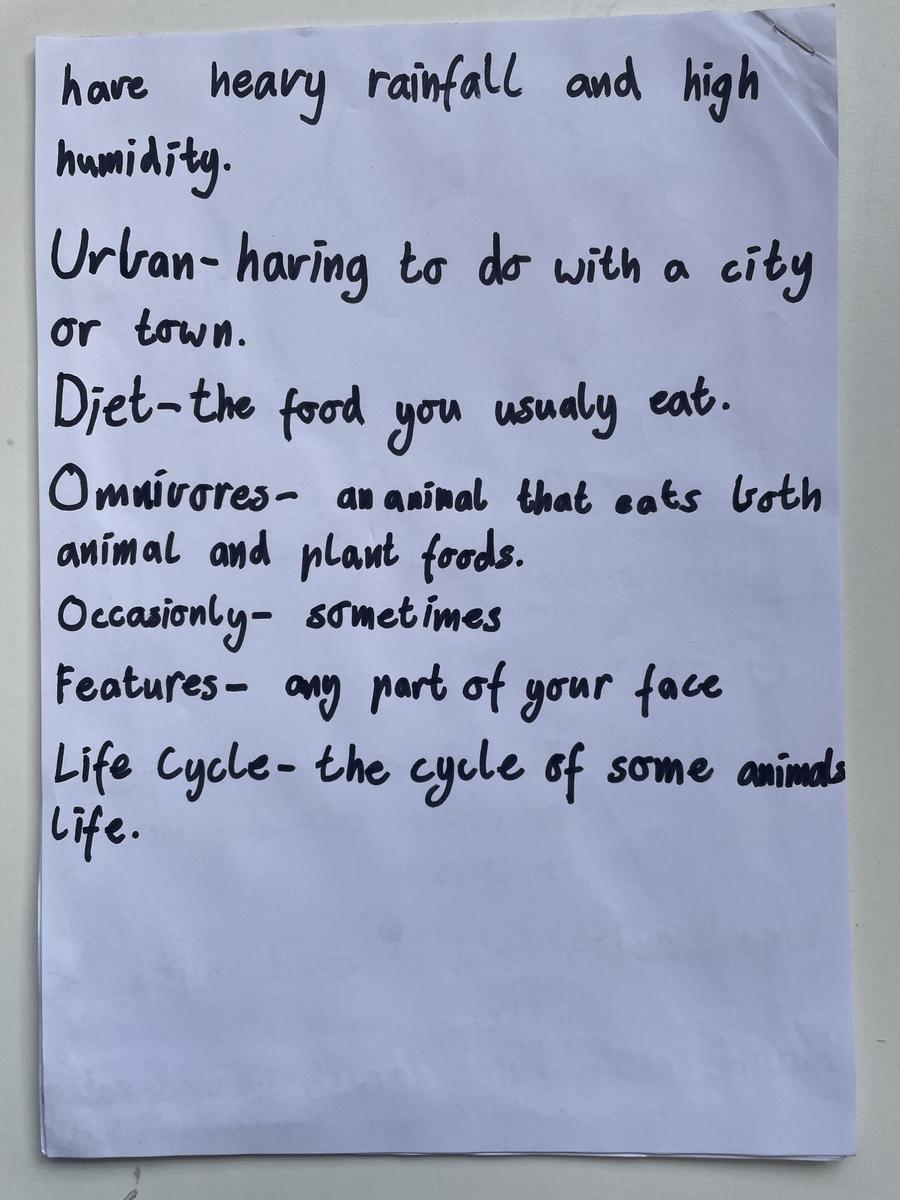 have heavy rainfall and high
humidity.
Urban- having to do with a city
or town.
Diet- the food you usualy eat.
Omnivores- an animal that eats both
animal and plant foods.
Occasionly- sometimes
Features- any part of your face
Life Cycle- the cycle of some animals
life.